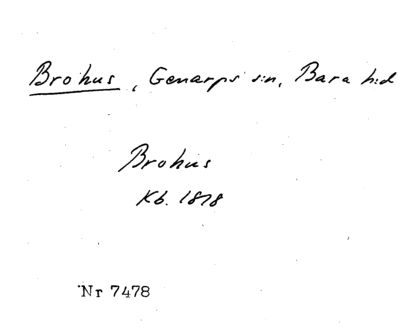 Brohus, Genarps sn, Bara hd
Brohus
Kb. 1818
Nr 7478